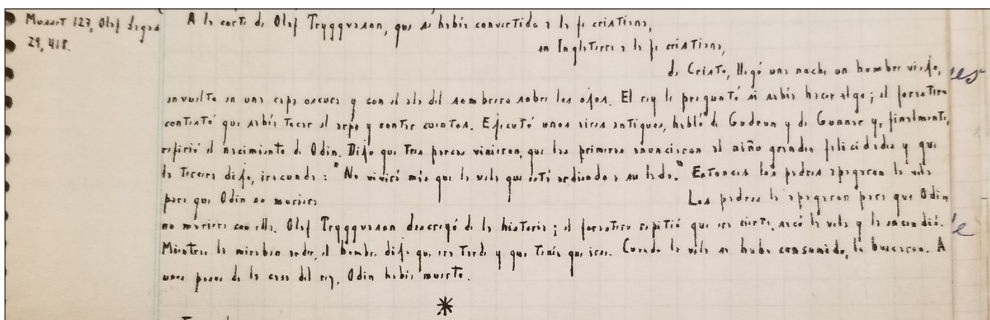 Musset 127, Olaf Sagas
29, 418.
A la corte de Olaf Tryggvason, que se había convertido a la fe cristiana,
en Inglaterra a la fe cristiana,
de Cristo, llegó una noche un hombre viejo,
envuelto en una capa oscura y con el ala del sombrero sobre los ojos. El rey le preguntó si sabía hacer algo; el forastero
contestó que sabía tocar el arpa y contar cuentos. Ejecutó unos aires antiguos, habló de Gudrun y de Gunnar y, finalmente,
refirió el nacimiento de Odin. Dijo que tres parcas vinieron, que las primeras anunciaron al niño grandes felicidades y que
la tercera dijo, iracunda: "No vivirá más que la vela que está ardiendo a su lado." Entonces los padres apagaron la vela
para que Odin no muriera Los padres la apagaron para que Odin
no muriera con ella. Olaf Tryggvason descreyó de la historia; el forastero repitió que era cierta, sacó la vela y la encendió.
Mientras la miraban arder, el hombre dijo que era tarde y que tenía que irse. Cuando la vela se hubo consumido, lo buscaron. A
unos pasos de la casa del rey, Odin había muerto.
*